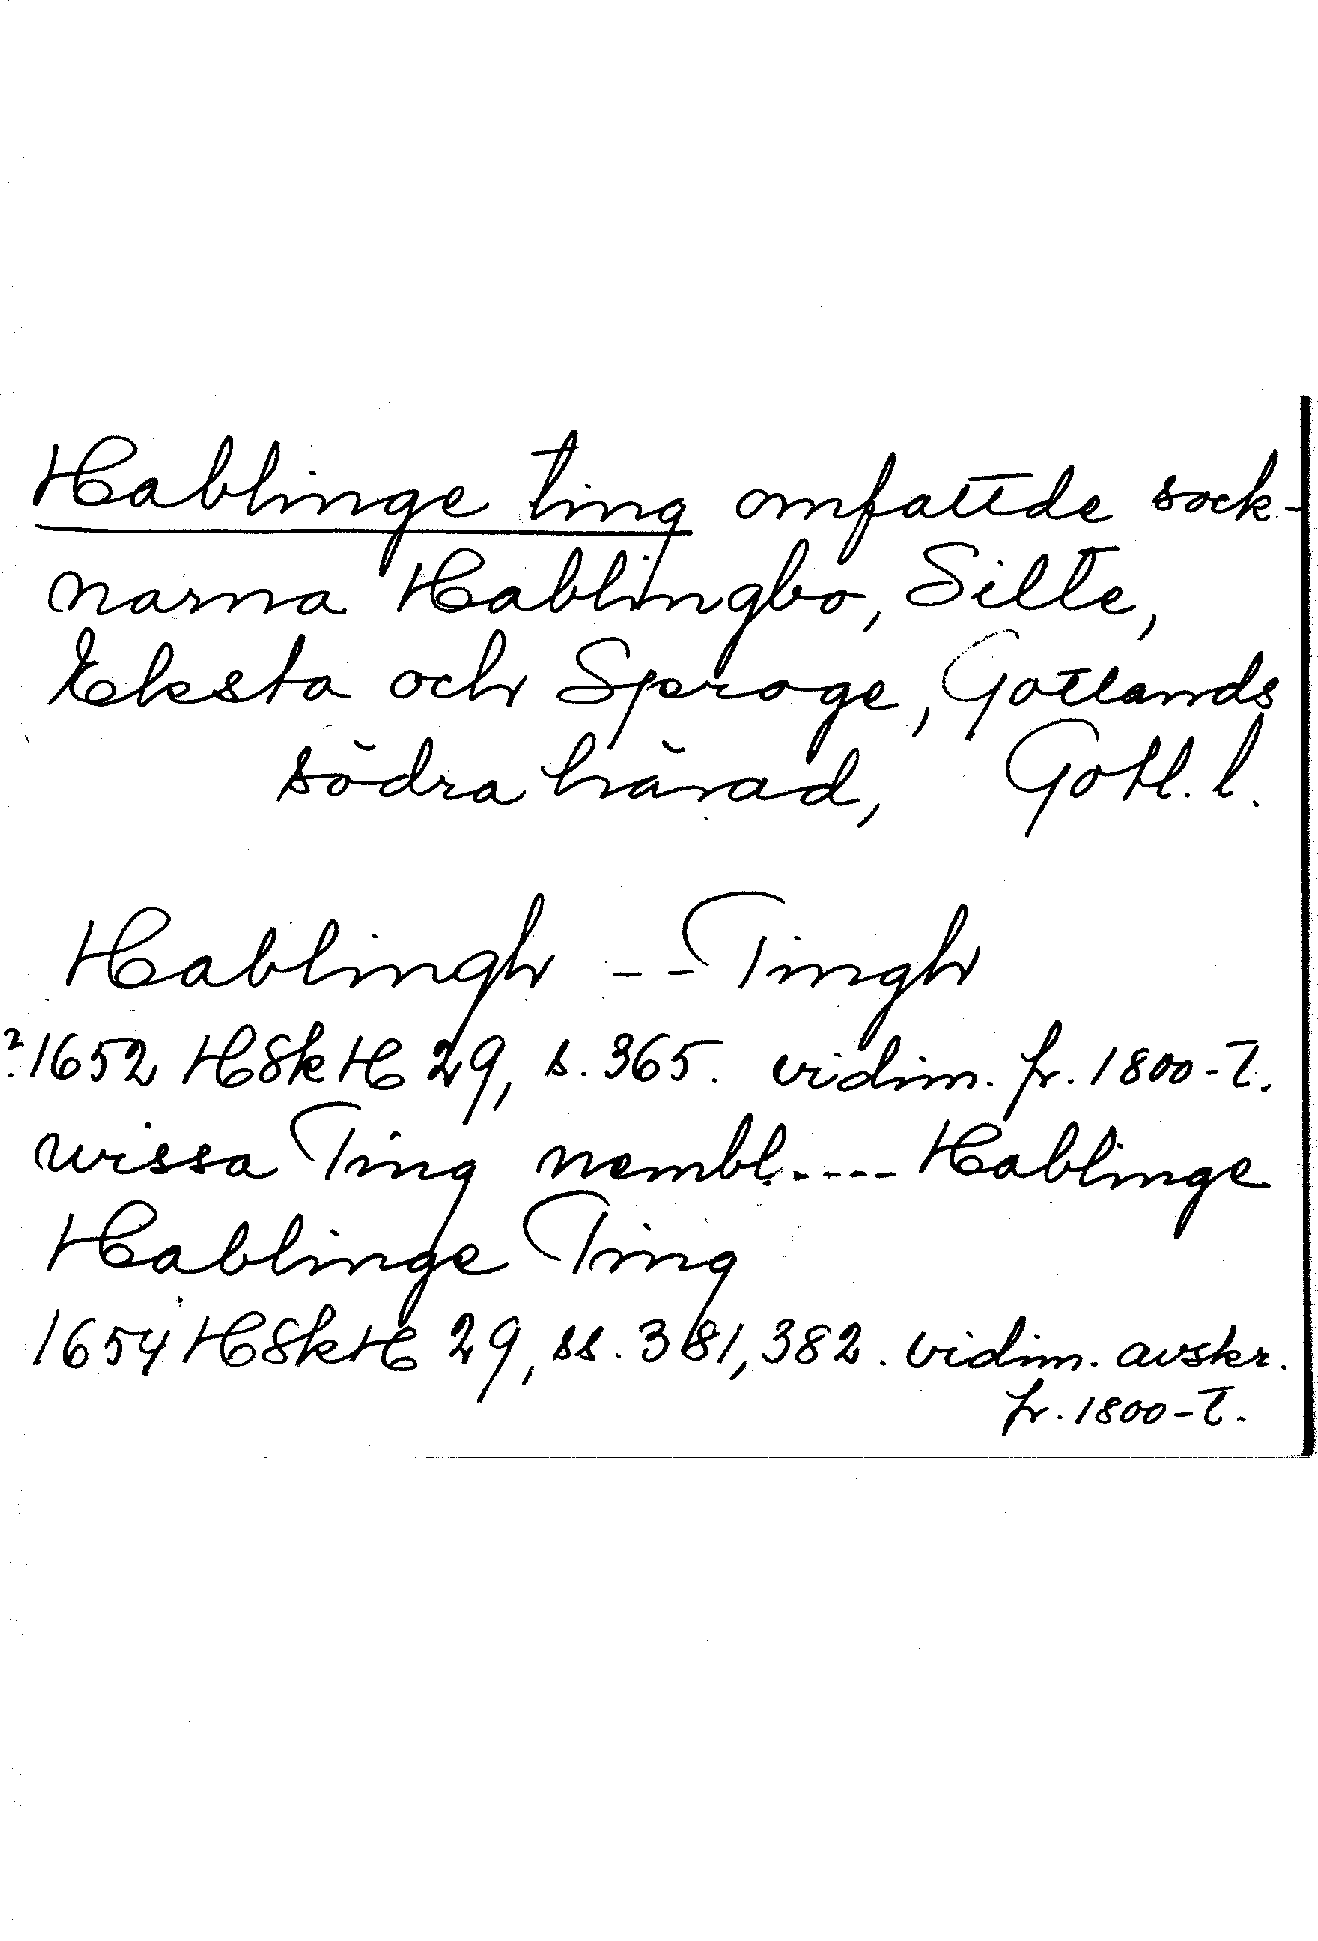 Hablinge ting omfattde sock-
narna Hablingbo, Silte,
Eksta och Sproge, Gotlands
södra härad, Gotl. l.
Hablingh -- Tingh
? 1652 HSkH 29, s. 365. vidim. fr. 1800-t.
wissa Ting nembl.---- Hablinge
Hablinge Ting
1654 HSkH 29, ss. 381, 382. vidim. avskr.
fr. 1800-t.